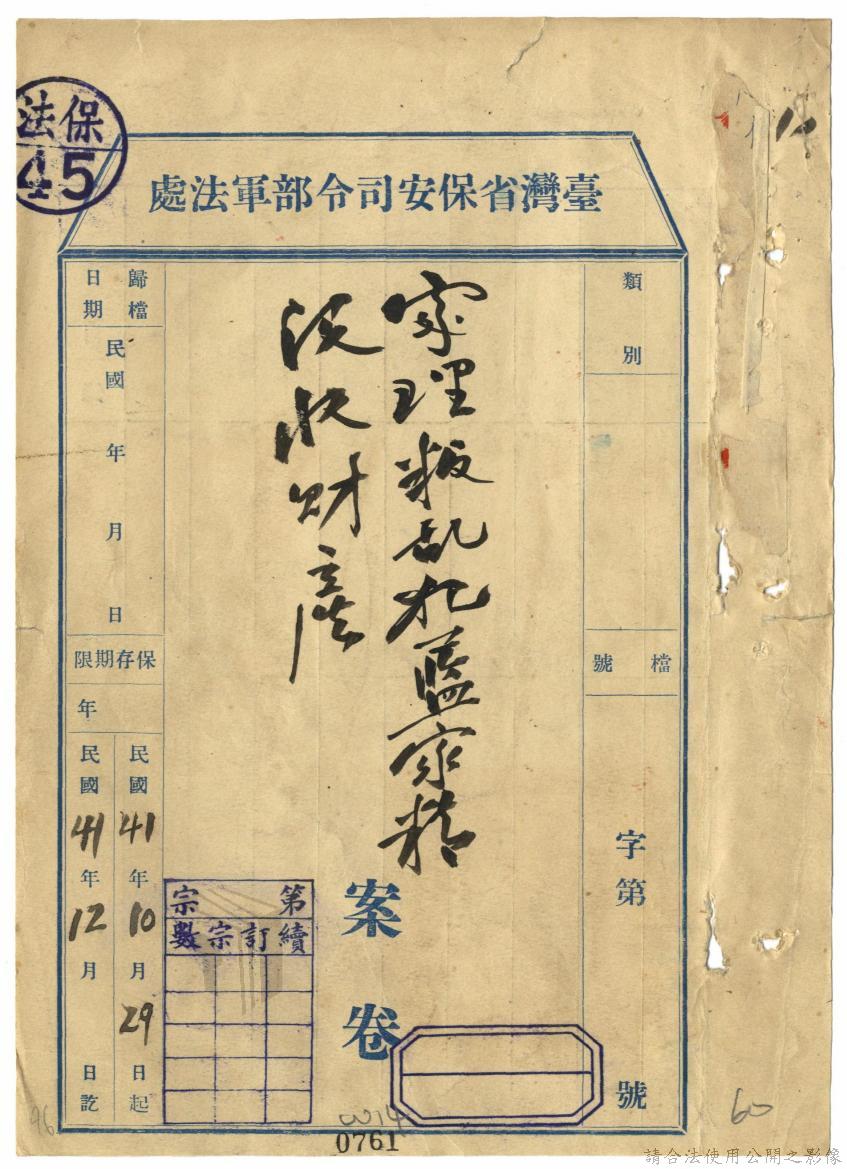 保法
45
臺灣省保安司令部軍法處
類別
檔號
字第
號
處理叛乱犯藍家精
沒收財產
案卷
第宗
續訂宗數
歸檔日期
民國年月日
保存期限
年
民國41年10月29日起
民國41年12月日訖
96
0761
60
請合法使用公開之影像